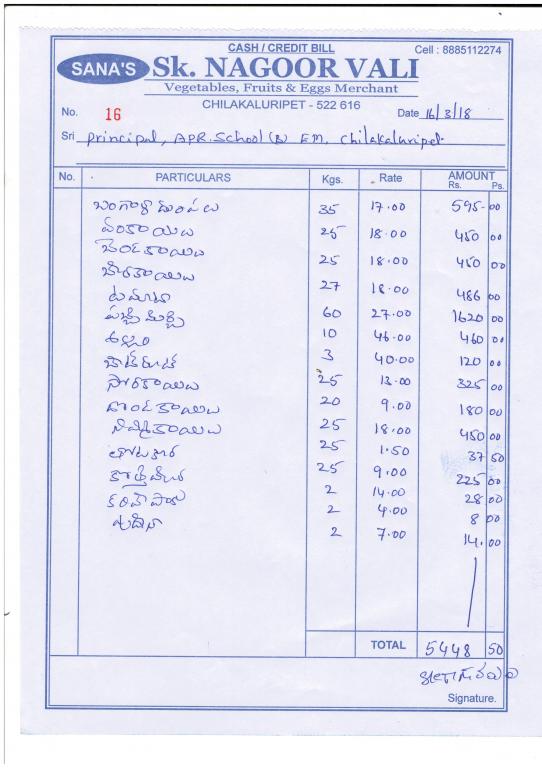 CASH / CREDIT BILL
Cell : 8885112274
SANA'S Sk. NAGOOR VALI
Vegetables, Fruits & Eggs Merchant
CHILAKALURIPET - 522 616
No. 16 Date 16/3/18
Sri Principal, APR. School (B) EM, Chilakaluripet
No. PARTICULARS Kgs. Rate AMOUNT
Rs. Ps.
బంగాళదుంపలు 35 17.00 595-00
వంకాయలు 25 18.00 450 00
బెండకాయలు 25 18.00 450 00
బీరకాయలు 27 18.00 486 00
టమాటా 60 27.00 1620 00
పచ్చిమిర్చి 10 46.00 460 00
అల్లం 3 40.00 120 00
బీట్‌రూట్ 25 13.00 325 00
సొరకాయలు 20 9.00 180 00
దొండకాయలు 25 18.00 450 00
నిమ్మకాయలు 25 1.50 37 50
తోటకూర 25 9.00 225 00
కొత్తిమీర 2 14.00 28 00
కరివేపాకు 2 4.00 8 00
పుదీనా 2 7.00 14.00
TOTAL 5448 50
Signature.